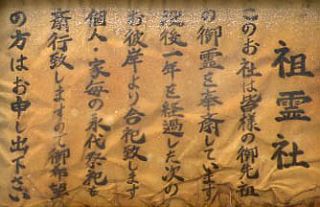 祖霊社
このお社は皆様の御先祖
の御霊を奉斎しています
歿後一年を経過した次の
お彼岸より合祀致します
個人・家毎の永代祭祀も
斎行致しますので御希望
の方はお申し出下さい